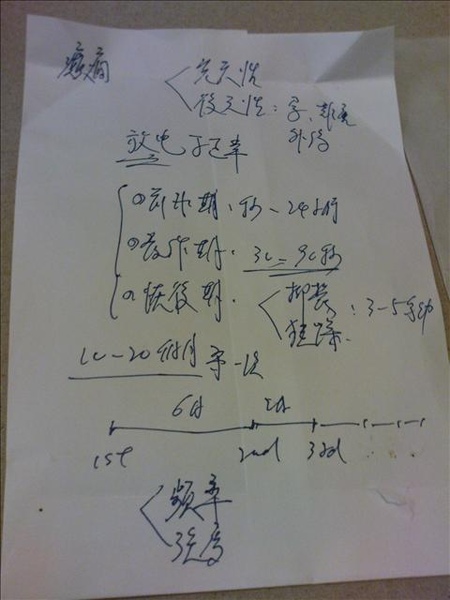 癲癇
先天性
後天性：
外傷
放電
①前兆期：秒－24小時
②發作期：30－90秒
③恢復期
抑鬱
狂躁
：3－5分鐘
10－20個月 一次
6月
1st 2nd 3rd
頻率
強度